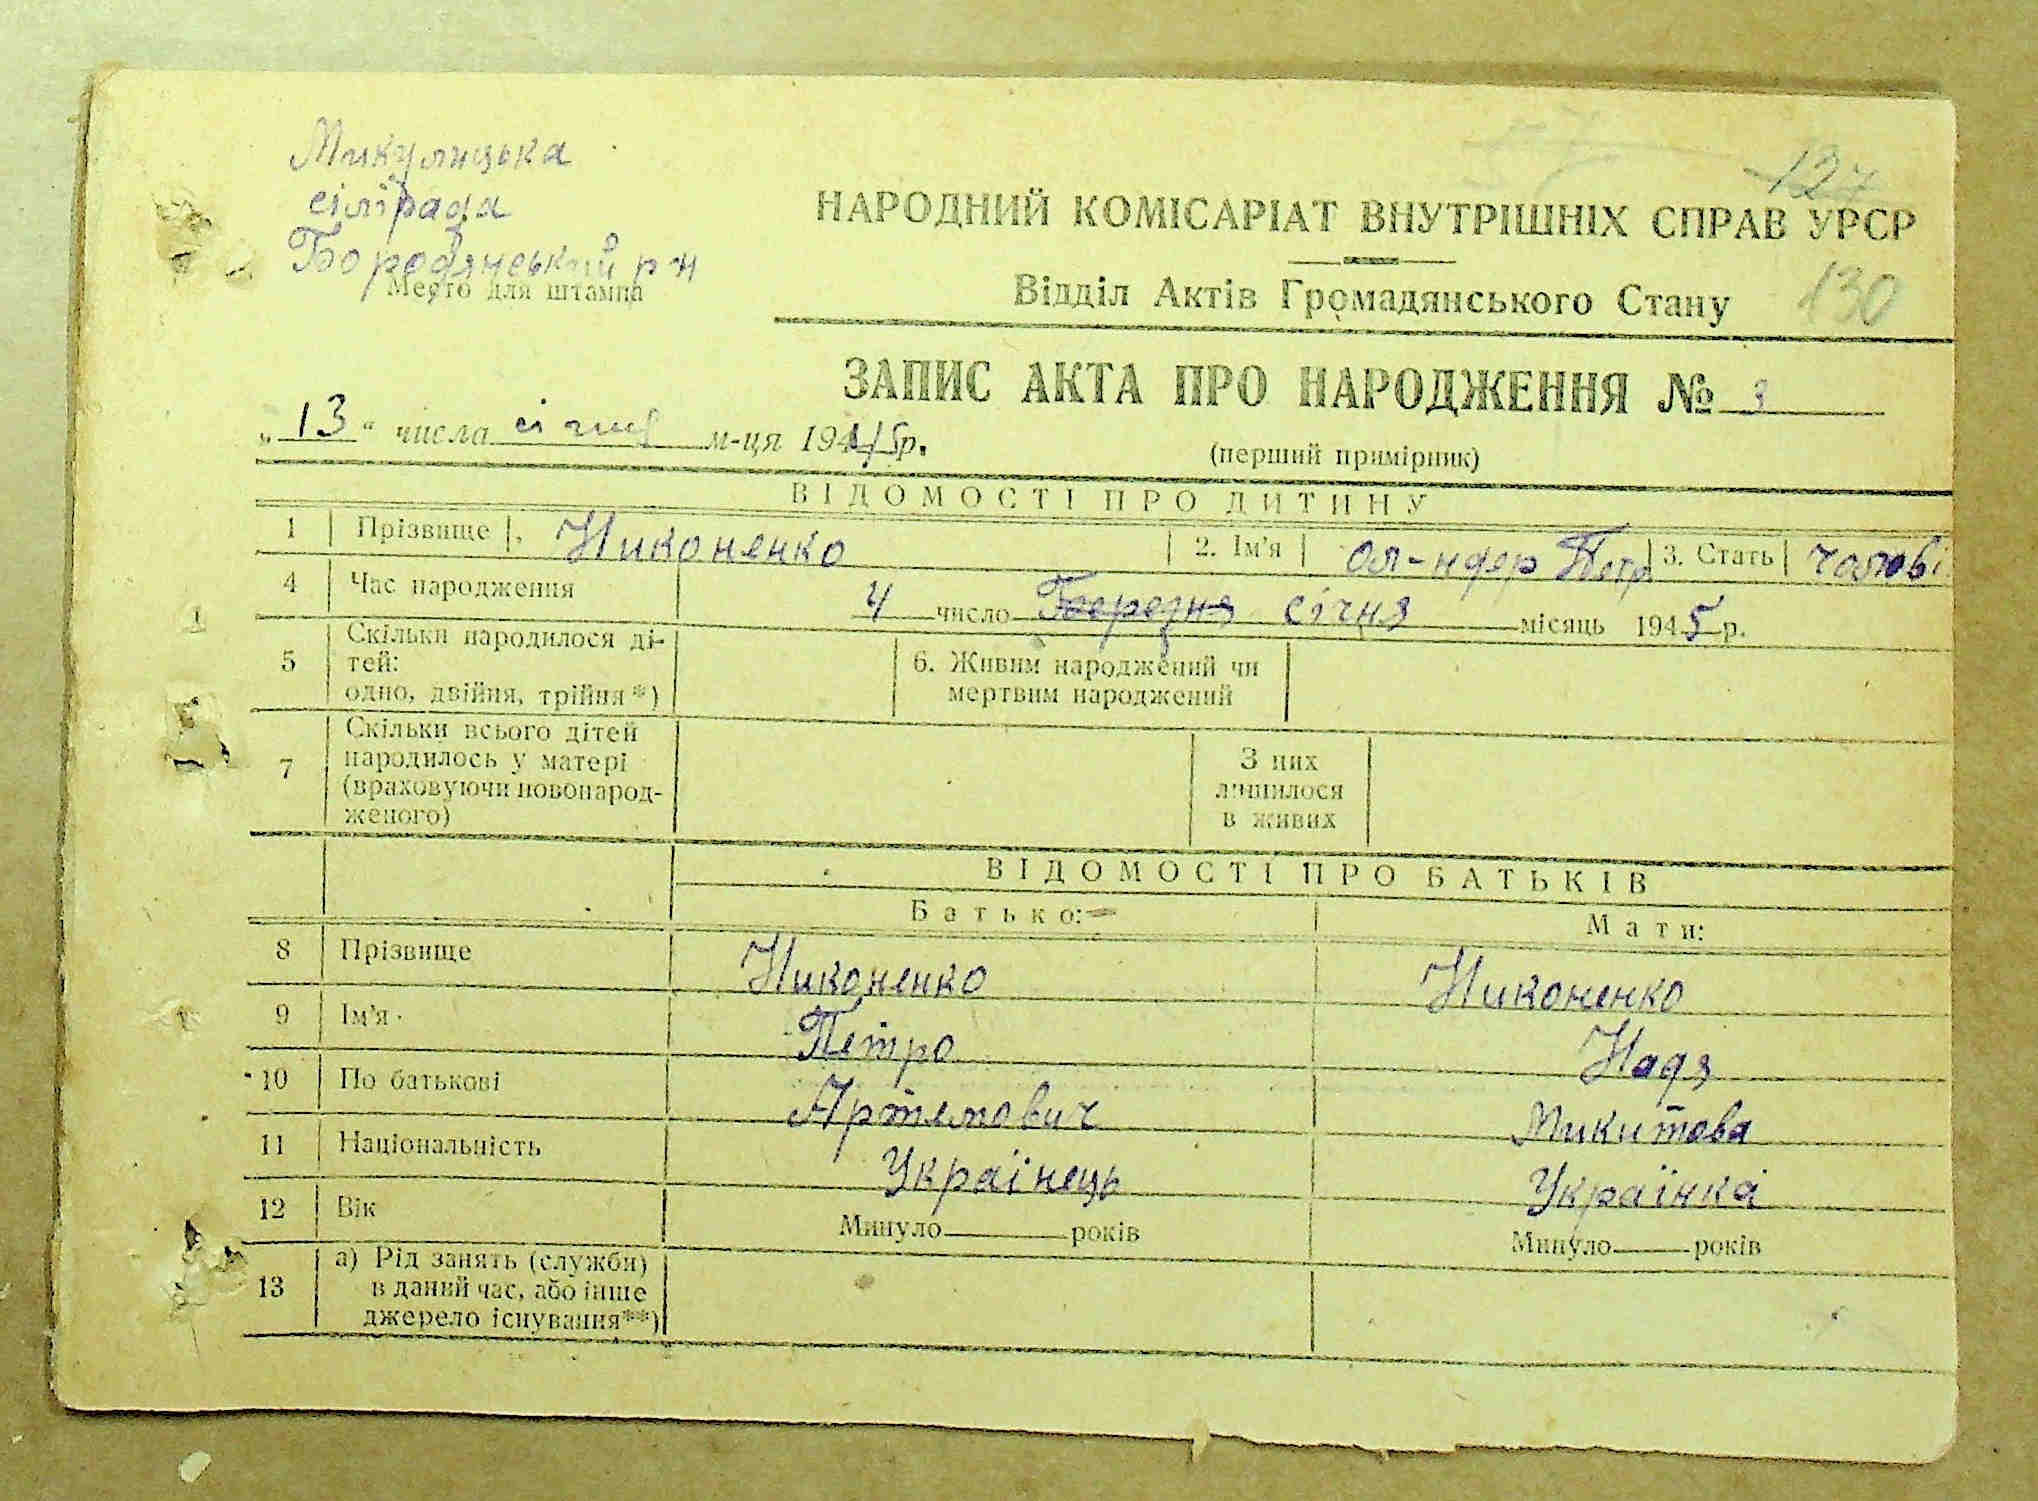 Микулицька
сілрада
Бородянський р н
Место для штампа
127
130
НАРОДНИЙ КОМІСАРІАТ ВНУТРІШНІХ СПРАВ УРСР
Відділ Актів Громадянського Стану
ЗАПИС АКТА ПРО НАРОДЖЕННЯ № 3
„13“ числа січня м-ця 1945р.
(перший примірник)
ВІДОМОСТІ ПРО ДИТИНУ
1 Прізвище Никоненко 2. Ім'я Ол-ндер Петр 3. Стать чолові
4 Час народження 4 число Березня січня місяць 1945 р.
5 Скільки народилося ді-
тей:
одно, двійня, трійня*)
6. Живим народжений чи
мертвим народжений
7 Скільки всього дітей
народилось у матері
(враховуючи новонарод-
женого)
З них
лишилося
в живих
ВІДОМОСТІ ПРО БАТЬКІВ
Батько: Мати:
8 Прізвище Никоненко Никоненко
9 Ім'я Петро Надя
10 По батькові Артемович Микитова
11 Національність Українець Українка
12 Вік Минуло років Минуло років
13 а) Рід занять (служби)
в даний час, або інше
джерело існування**)